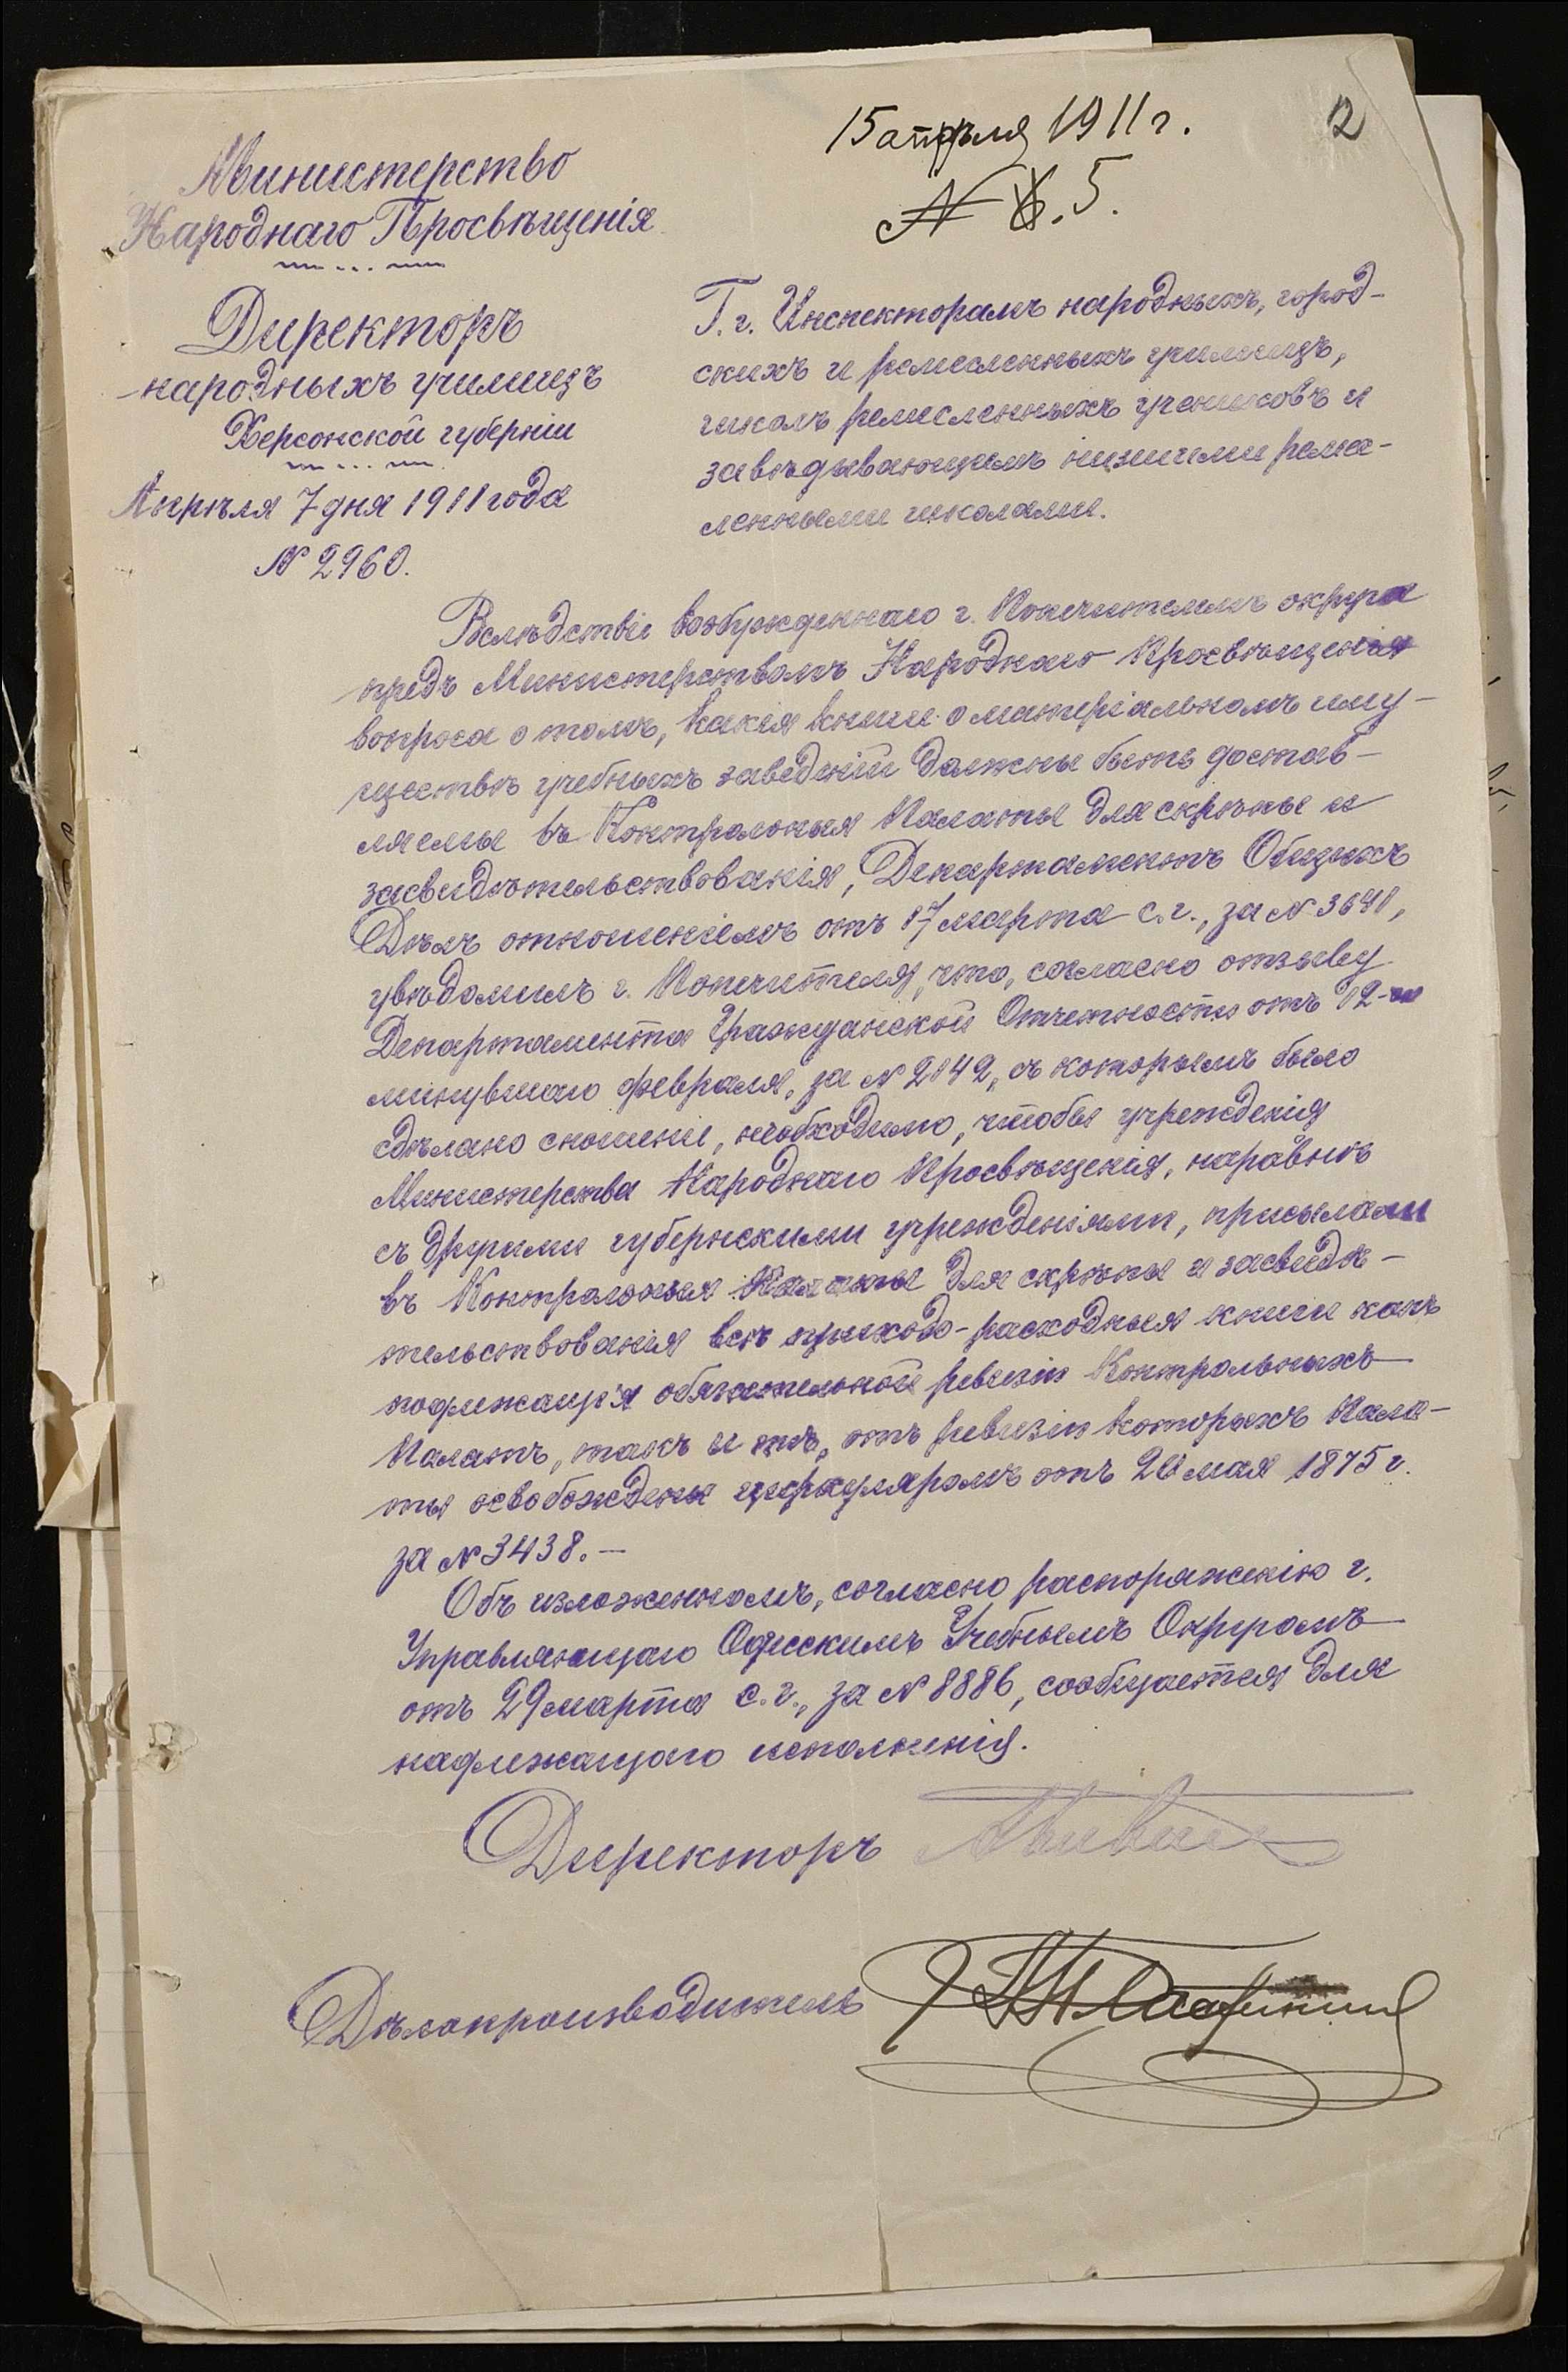 15 апрѣля 1911 г.
2
№ 5.
Министерство
Народнаго Просвѣщенія
Директоръ
народныхъ училищъ
Херсонской губерніи
Апрѣля 7 дня 1911 года
№ 2960.
Г. г. Инспекторамъ народныхъ, город-
скихъ и ремесленныхъ училищъ,
школъ ремесленныхъ учениковъ и
завѣдывающимъ низшими ремес-
ленными школами.
Вслѣдствіе возбужденнаго г. Попечителемъ округа
предъ Министерствомъ Народнаго Просвѣщенія
вопроса о томъ, какія книги о матеріальномъ иму-
ществѣ учебныхъ заведеній должны быть достав-
ляемы въ Контрольныя Палаты для скрѣпы и
засвидѣтельствованія, Департаментъ Общихъ
Дѣлъ отношеніемъ отъ 17 марта с. г., за № 3641,
увѣдомилъ г. Попечителя, что, согласно отзыву
Департамента Гражданской Отчетности отъ 12-го
минувшаго февраля, за № 2142, съ которымъ было
сдѣлано сношеніе, необходимо, чтобы учрежденія
Министерства Народнаго Просвѣщенія, наравнѣ
съ другими губернскими учрежденіями, присылали
въ Контрольныя Палаты для скрѣпы и засвидѣ-
тельствованія всѣ приходо-расходныя книги какъ
подлежащія обязательной ревизіи Контрольныхъ
Палатъ, такъ и тѣ, отъ ревизіи которыхъ Пала-
ты освобождены циркуляромъ отъ 20 мая 1875 г.
за № 3438. —
Объ изложенномъ, согласно распоряженію г.
Управляющаго Одесскимъ Учебнымъ Округомъ
отъ 29 марта с. г., за № 8886, сообщается для
надлежащаго исполненія.
Директоръ
Дѣлопроизводитель